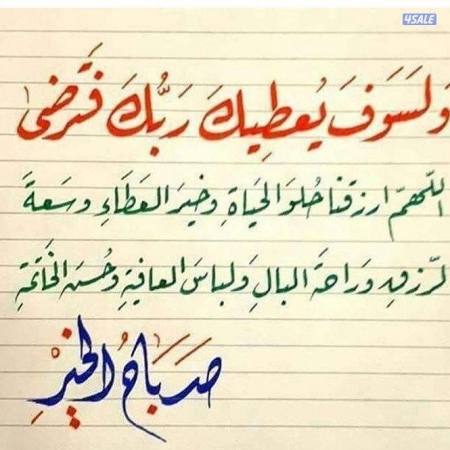 4SALE
وَلَسَوفَ يُعطِيكَ رَبُّكَ فَتَرضىٰ
اللّهمّ ارزقنا حُلوَ الحَياةِ وخيرَ العَطَاءِ وسَعةَ
الرّزقِ وَراحَةَ البالِ وَلباسَ العافيةِ وحُسنَ الخَاتمةِ
صَبَاحُ الخَيْرِ